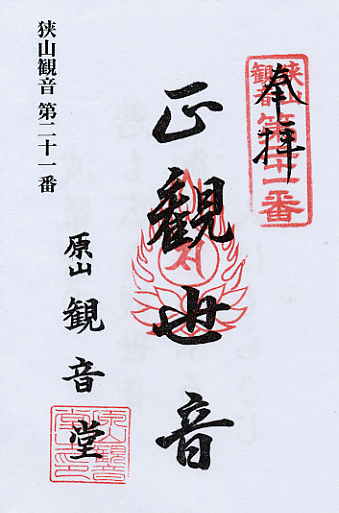 奉拝
狭山
観音
第二十一番
正観世音
原山 観音堂
狭山観音 第二十一番